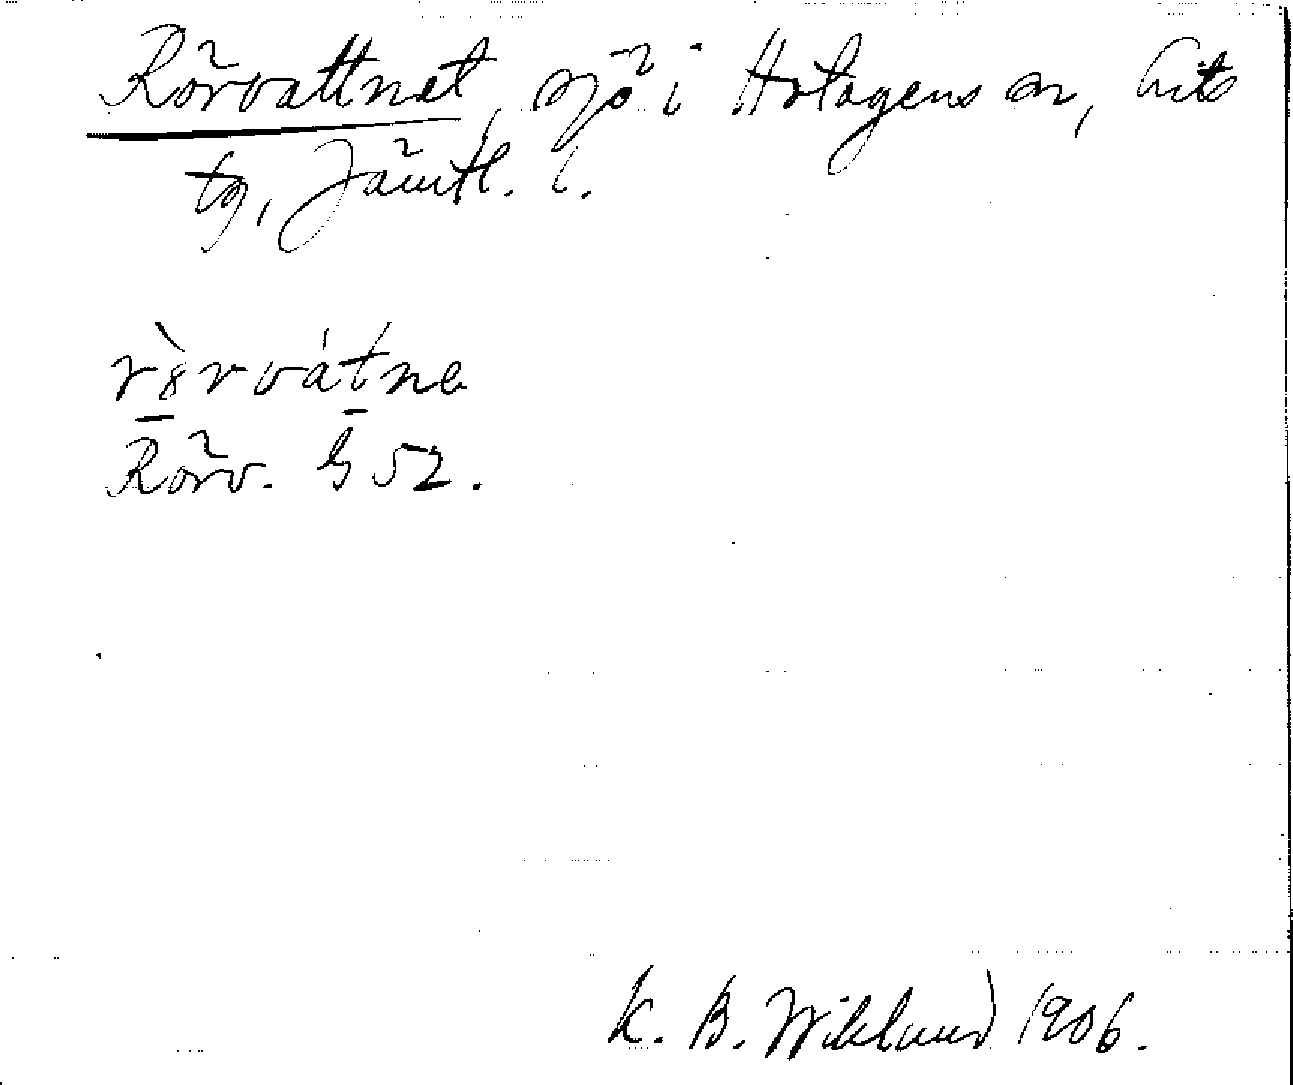 Rörvattnet, sjö i Hotagens sn, Lits
tg, Jämtl. l.
rö̀rvátne
Rörv. h 52.
K. B. Wiklund 1906.